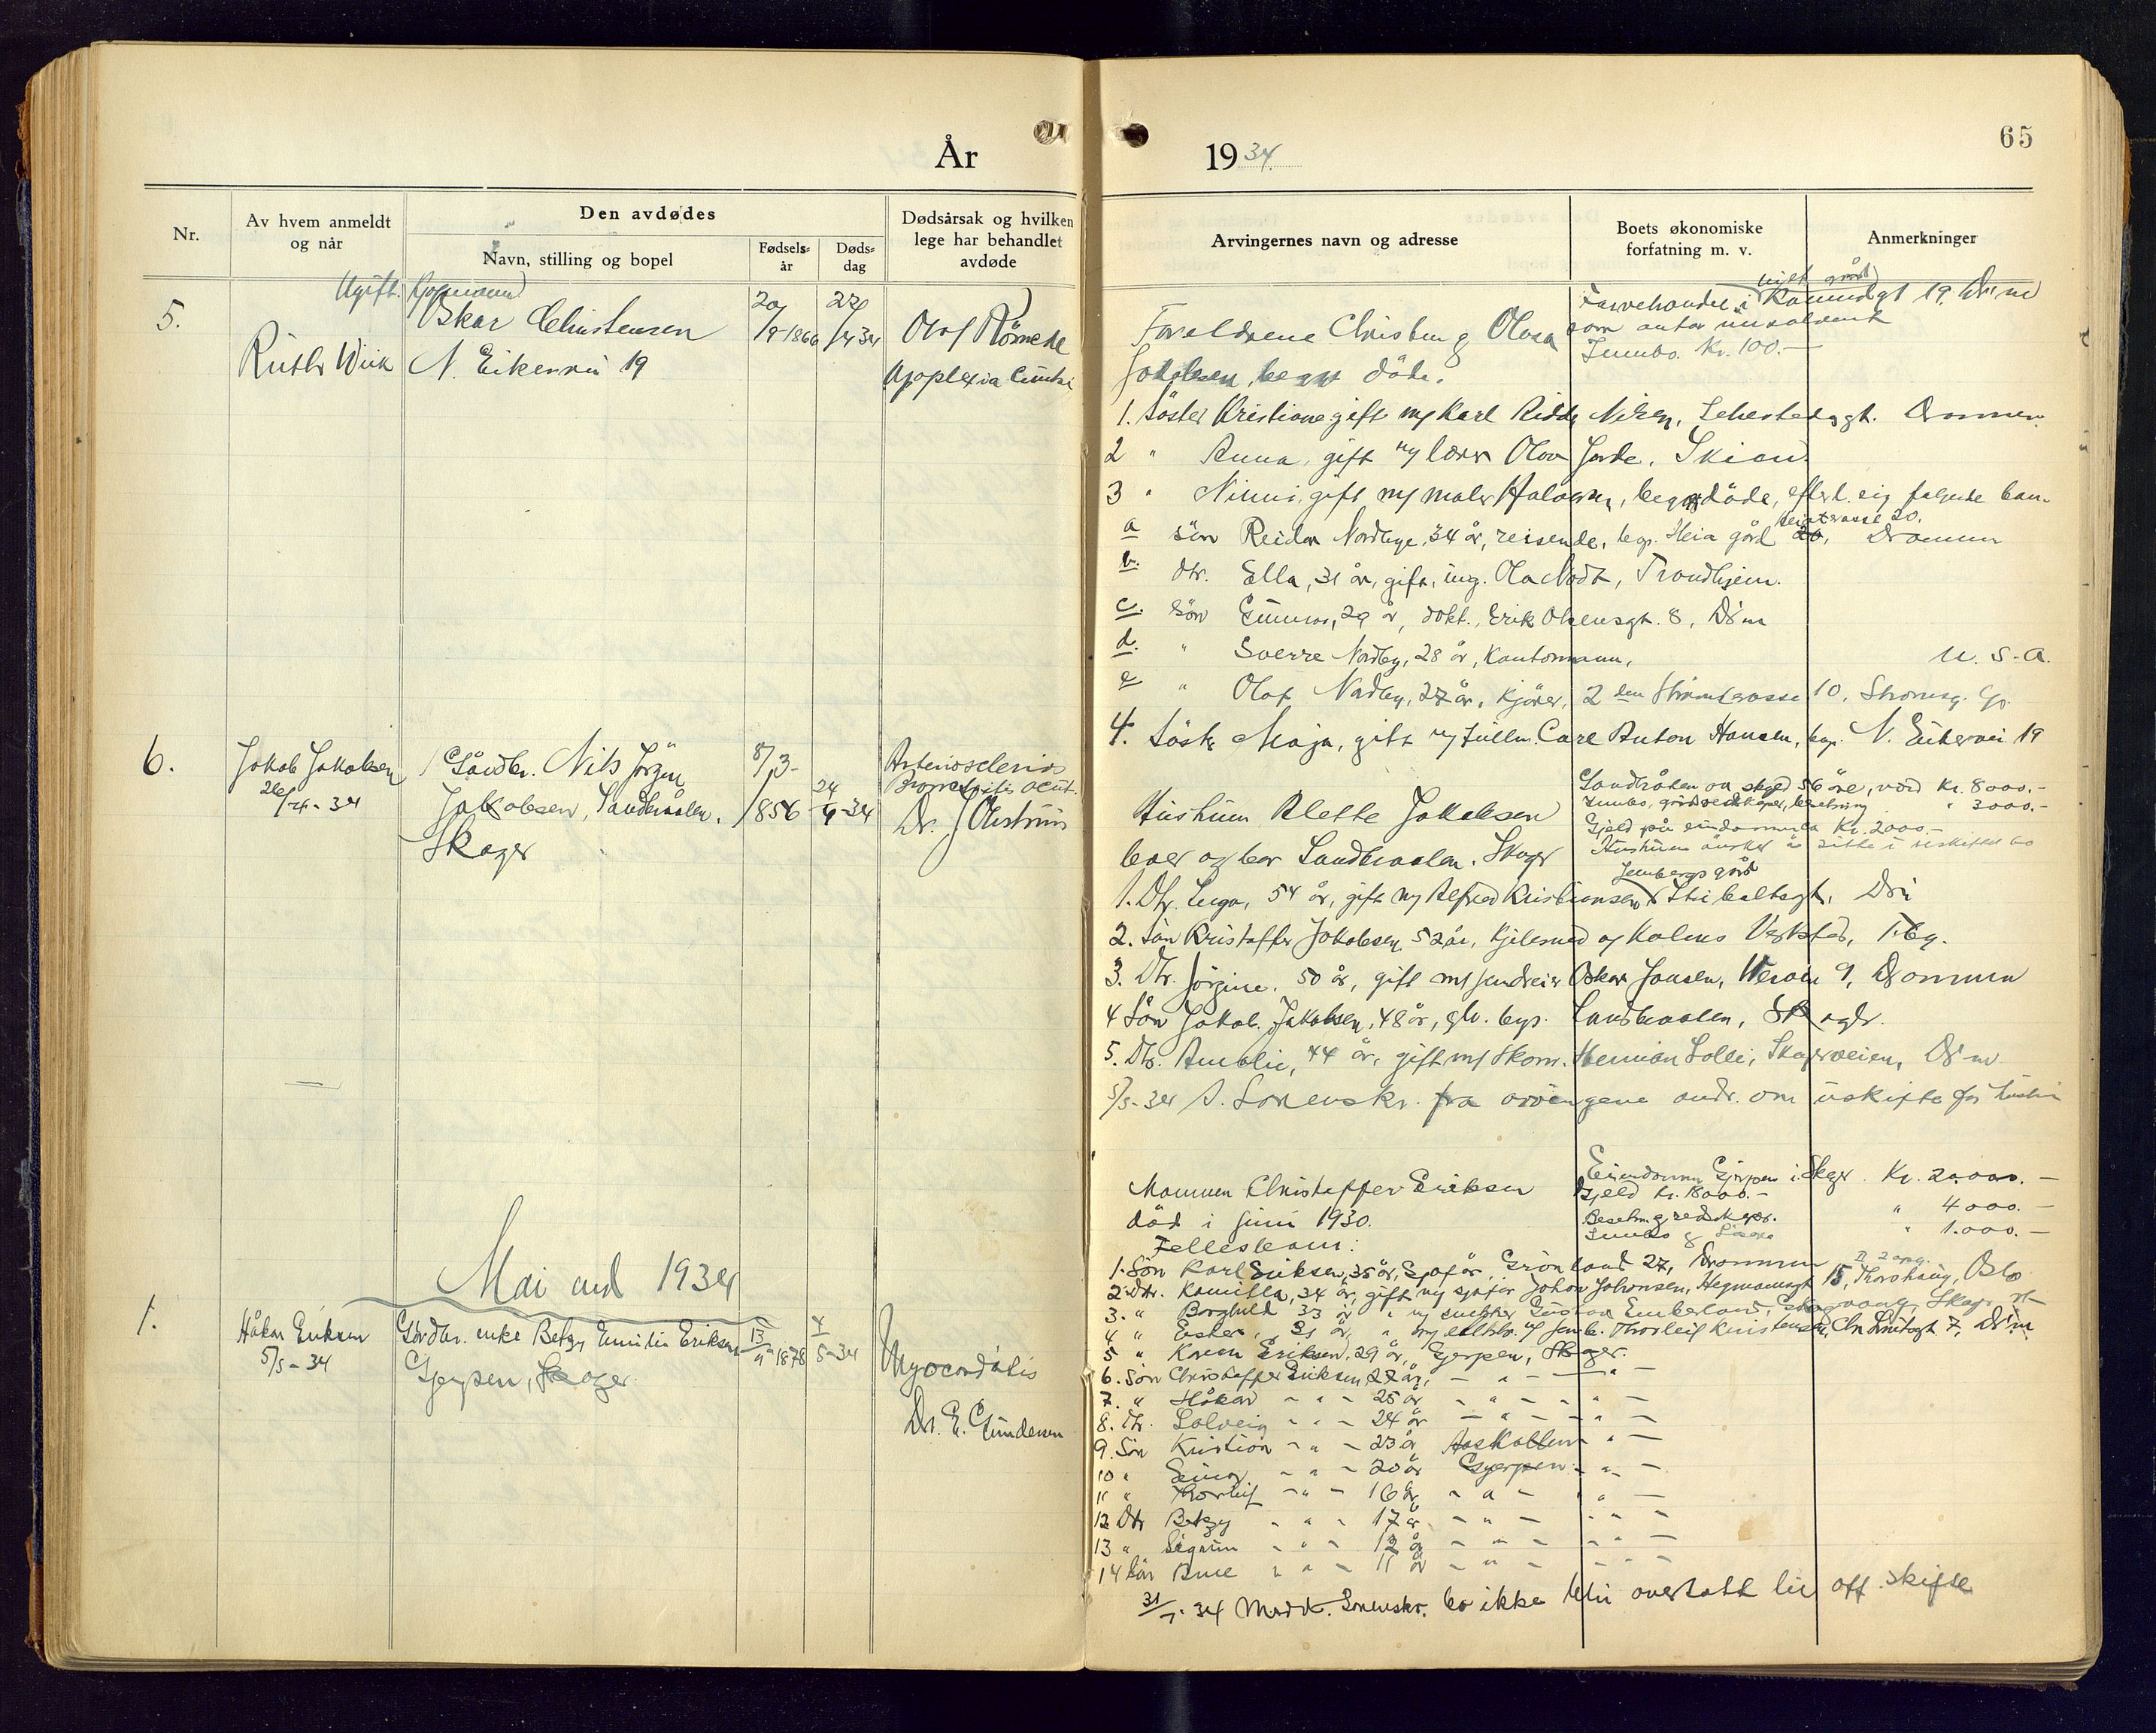 År
1934.
65
Nr.
Av hvem anmeldt og når
Den avdødes
Navn, stilling og bopel
Fødsels-år
Døds-dag
Dødsårsak og hvilken lege har behandlet avdøde
Arvingernes navn og adresse
Boets økonomiske forfatning m. v.
Anmerkninger
Ugift.
5.
Ruth Wiik
Oskar Christensen
N. Eikervei 19
20/9-1866
/4 34
Olaf
Apoplexia
Farvehandel i 19, Drm
som antas insolvent
Innbo. Kr. 100.-
Foreldrene og
Jakobsen, begge døde.
1. Søster Kristiane gift m/ Karl Nilsen, Drammen.
2 " Anna, gift m/ lærer Olav Skien.
3 " Ninni, gift m/ maler begge døde, efterl. sig følgende barn
a søn Reidar Nordbye, 34 år, reisende, bop. Heia gård 20, Drammen
b. dtr. Ella, 31 år, gift, ing. Ola Trondhjem.
c. søn Gunnar, 29 år, dokt., Erik Olsensgt. 8, Drm
d. " Sverre Nordby, 28 år, Kontormann, U. S. A.
e " Olaf Nordby, 27 år, kjører, 10,
4. Søster Maja, gift m/ fullm. Carl Anton Hansen, bop. N. Eikervei 19
6.
Jakob Jakobsen
26/4-34
Gårdbr. Nils Jörgen
Jakobsen, Sandbråten.
Skoger
8/3-
1856
24
4-34
Arteriosclerios
acut.
Dr. J
Hustrüen Alette Jakobsen
lever og bor Sandbraaten. Skoger
Sandbråten av skyld 56 øre, verd Kr. 8000.-
Innbo, gårdsredskaper, besetning " 3000.-
Gjeld på eiendommen Kr. 2000.-
Hustrüen ønsker å sitte i uskiftet bo
1. Dtr. Inga, 54 år, gift m/ Alfred Kristiansen
2. Søn Kristoffer Jakobsen, 52 år, Kjelesmed
3. Dtr. Jørgine, 50 år, gift m/ Oskar Jonsen, 9, Drammen
4 Søn Jakob Jakobsen, 48 år, gbr. bop. Sandbraaten, Skoger.
5. Dtr. Amalie, 44 år, gift m/ Skom. Herman Skogerveien, Drm
5/5-34 S. Sorenskr. fra arvingene andr. om uskifte for
Mai md 1934
1.
Håkon Eriksen
5/5-34
Gårdbr. enke Betzy Emilie Eriksen
Gjerpen, Skoger.
13/9 1878
4/5-34
Myocarditis
Dr. E. Gundersen
Mannen Christoffer Eriksen
død i juni 1930.
Fellesbarn:
Eiendommen Gjerpen i Skoger. Kr. 20.000.-
Gjeld Kr. 18000.-
Besetn. g redskaper. " 4000.-
Innbo g " 1.000.-
1. Søn Karl Eriksen, 35 år, Sjafør, Grønland 27, Drammen
2. Dtr. Kamilla, 34 år, gift m/ sjafør Johan Johansen, Hegmannsgt 15, Oslo
3. " Borghild 33 år " m/ snekker Gustav
4 " Ester, 31 år, " Thorleif Kristensen, 7, Drm
5 " Karen Eriksen, 29 år, Gjerpen, Skoger.
6. Søn Christoffer Eriksen 27 år, - " -
7. " Håkon - " - 25 år - " -
8. Dtr. Solveig - " - 24 år - " -
9. Søn Kristian - " - 23 år
10 " Einar - " - 20 år Gjerpen - " -
11 " Thorleif - " - 16 år - " -
12 Dtr Betzy - " - 17 år - " -
13 " Sigrun - " - 12 år - " -
14 Søn Arne - " - 11 år - " -
31/7-34 Medd. Sorenskr. bo ikke blir overtatt til off. skifte